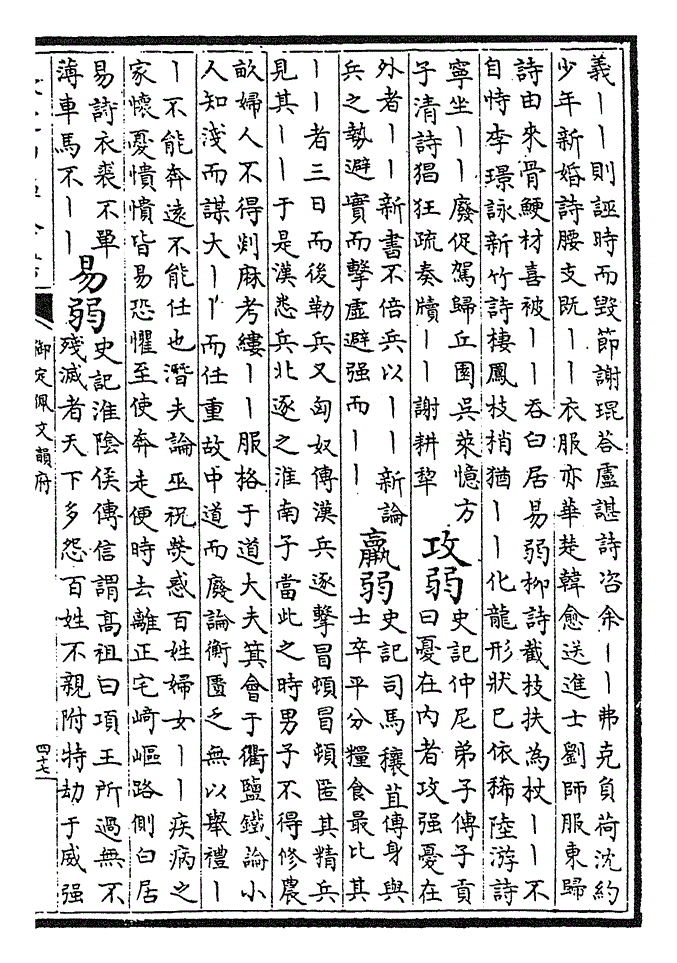 義丨丨則誣時而毀節謝琨荅盧諶詩咨余丨丨弗克負荷沈約
少年新婚詩腰支既丨丨衣服亦華楚韓愈送進士劉師服東歸
詩由來骨鯁材喜被丨丨吞白居易弱柳詩截技扶為杖丨丨不
自恃李璟詠新竹詩棲鳳枝梢猶丨丨化龍形狀已依稀陸游詩
寧坐丨丨廢促駕歸丘園吳萊憶方
子清詩猖狂疏奏牘丨丨謝耕犂
攻弱
史記仲尼弟子傳子貢
曰憂在內者攻强憂在
外者丨丨新書不倍兵以丨丨新論
兵之勢避實而擊虛避强而丨丨
羸弱
史記司馬穰苴傳身與
士卒平分糧食最比其
丨丨者三日而後勒兵又匈奴傳漢兵逐擊冒頓冒頓匿其精兵
見其丨丨于是漢悉兵北逐之淮南子當此之時男子不得修農
畝婦人不得剡麻考縷丨丨服格于道大夫箕會于衢鹽鐵論小
人知淺而謀大丨丨而任重故中道而廢論衡匱乏無以舉禮丨
丨不能奔遠不能任也潛夫論巫祝熒惑百姓婦女丨丨疾病之
家懷憂憒憒皆易恐懼至使奔走便時去離正宅崎嶇路側白居
易詩衣裘不單
薄車馬不丨丨
易弱
史記淮陰侯傳信謂髙祖曰項王所過無不
殘滅者天下多怨百姓不親附特劫于威强
御定佩文韻府
四十七